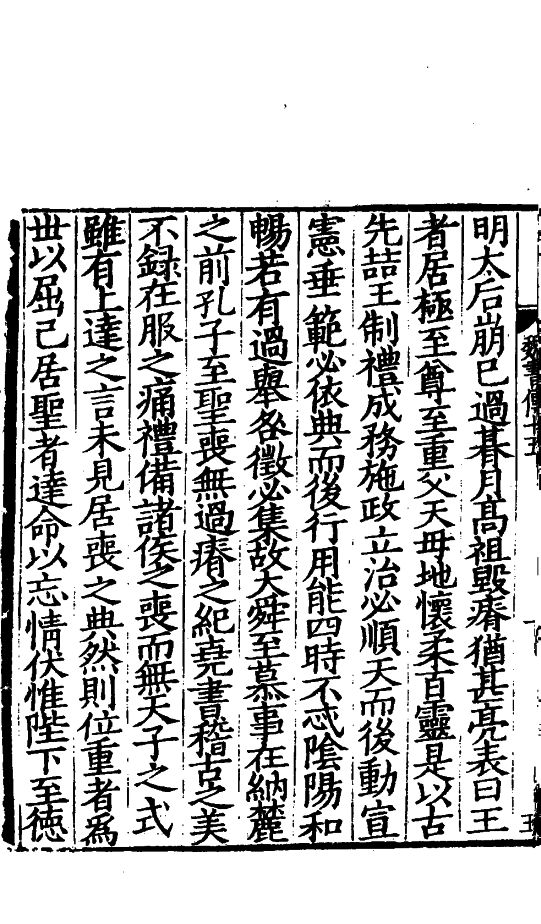 明太后崩已過朞月髙祖毀瘠猶甚亮表曰王
者居極至尊至重父天母地懷柔百靈是以古
先喆王制禮成務施政立治必順天而後動宣
憲垂範必依典而後行用能四時不忒隂陽和
暢若有過舉咎徵必集故大舜至慕事在納麓
之前孔子至聖喪無過瘠之紀堯書稽古之美
不録在服之痛禮備諸侯之喪而無天子之式
雖有上達之言未見居喪之典然則位重者爲
世以屈己居聖者達命以忘情伏惟陛下至徳